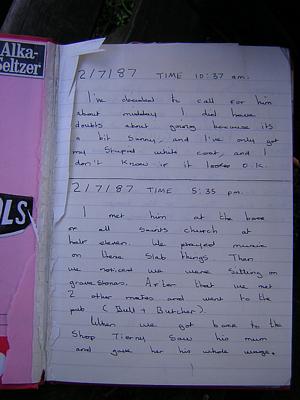 Alka-
Seltzer
OLS
2/7/87 TIME 10:37 am.
I've decided to call for him
about midday I did have
doubts about going because its
a bit sunny, and I've only got
my stupid white coat, and I
don't know if it looks O.K.
2/7/87 TIME 5:35 pm.
I met him at the base
of all saints church at
half eleven. We played music
on these slab things. Then
we noticed we were sitting on
gravestones. After that we met
2 other mates and went to the
pub (Bull + Butcher).
When we got back to the
Shop Tierny saw his mum
and gave her his whole wage.